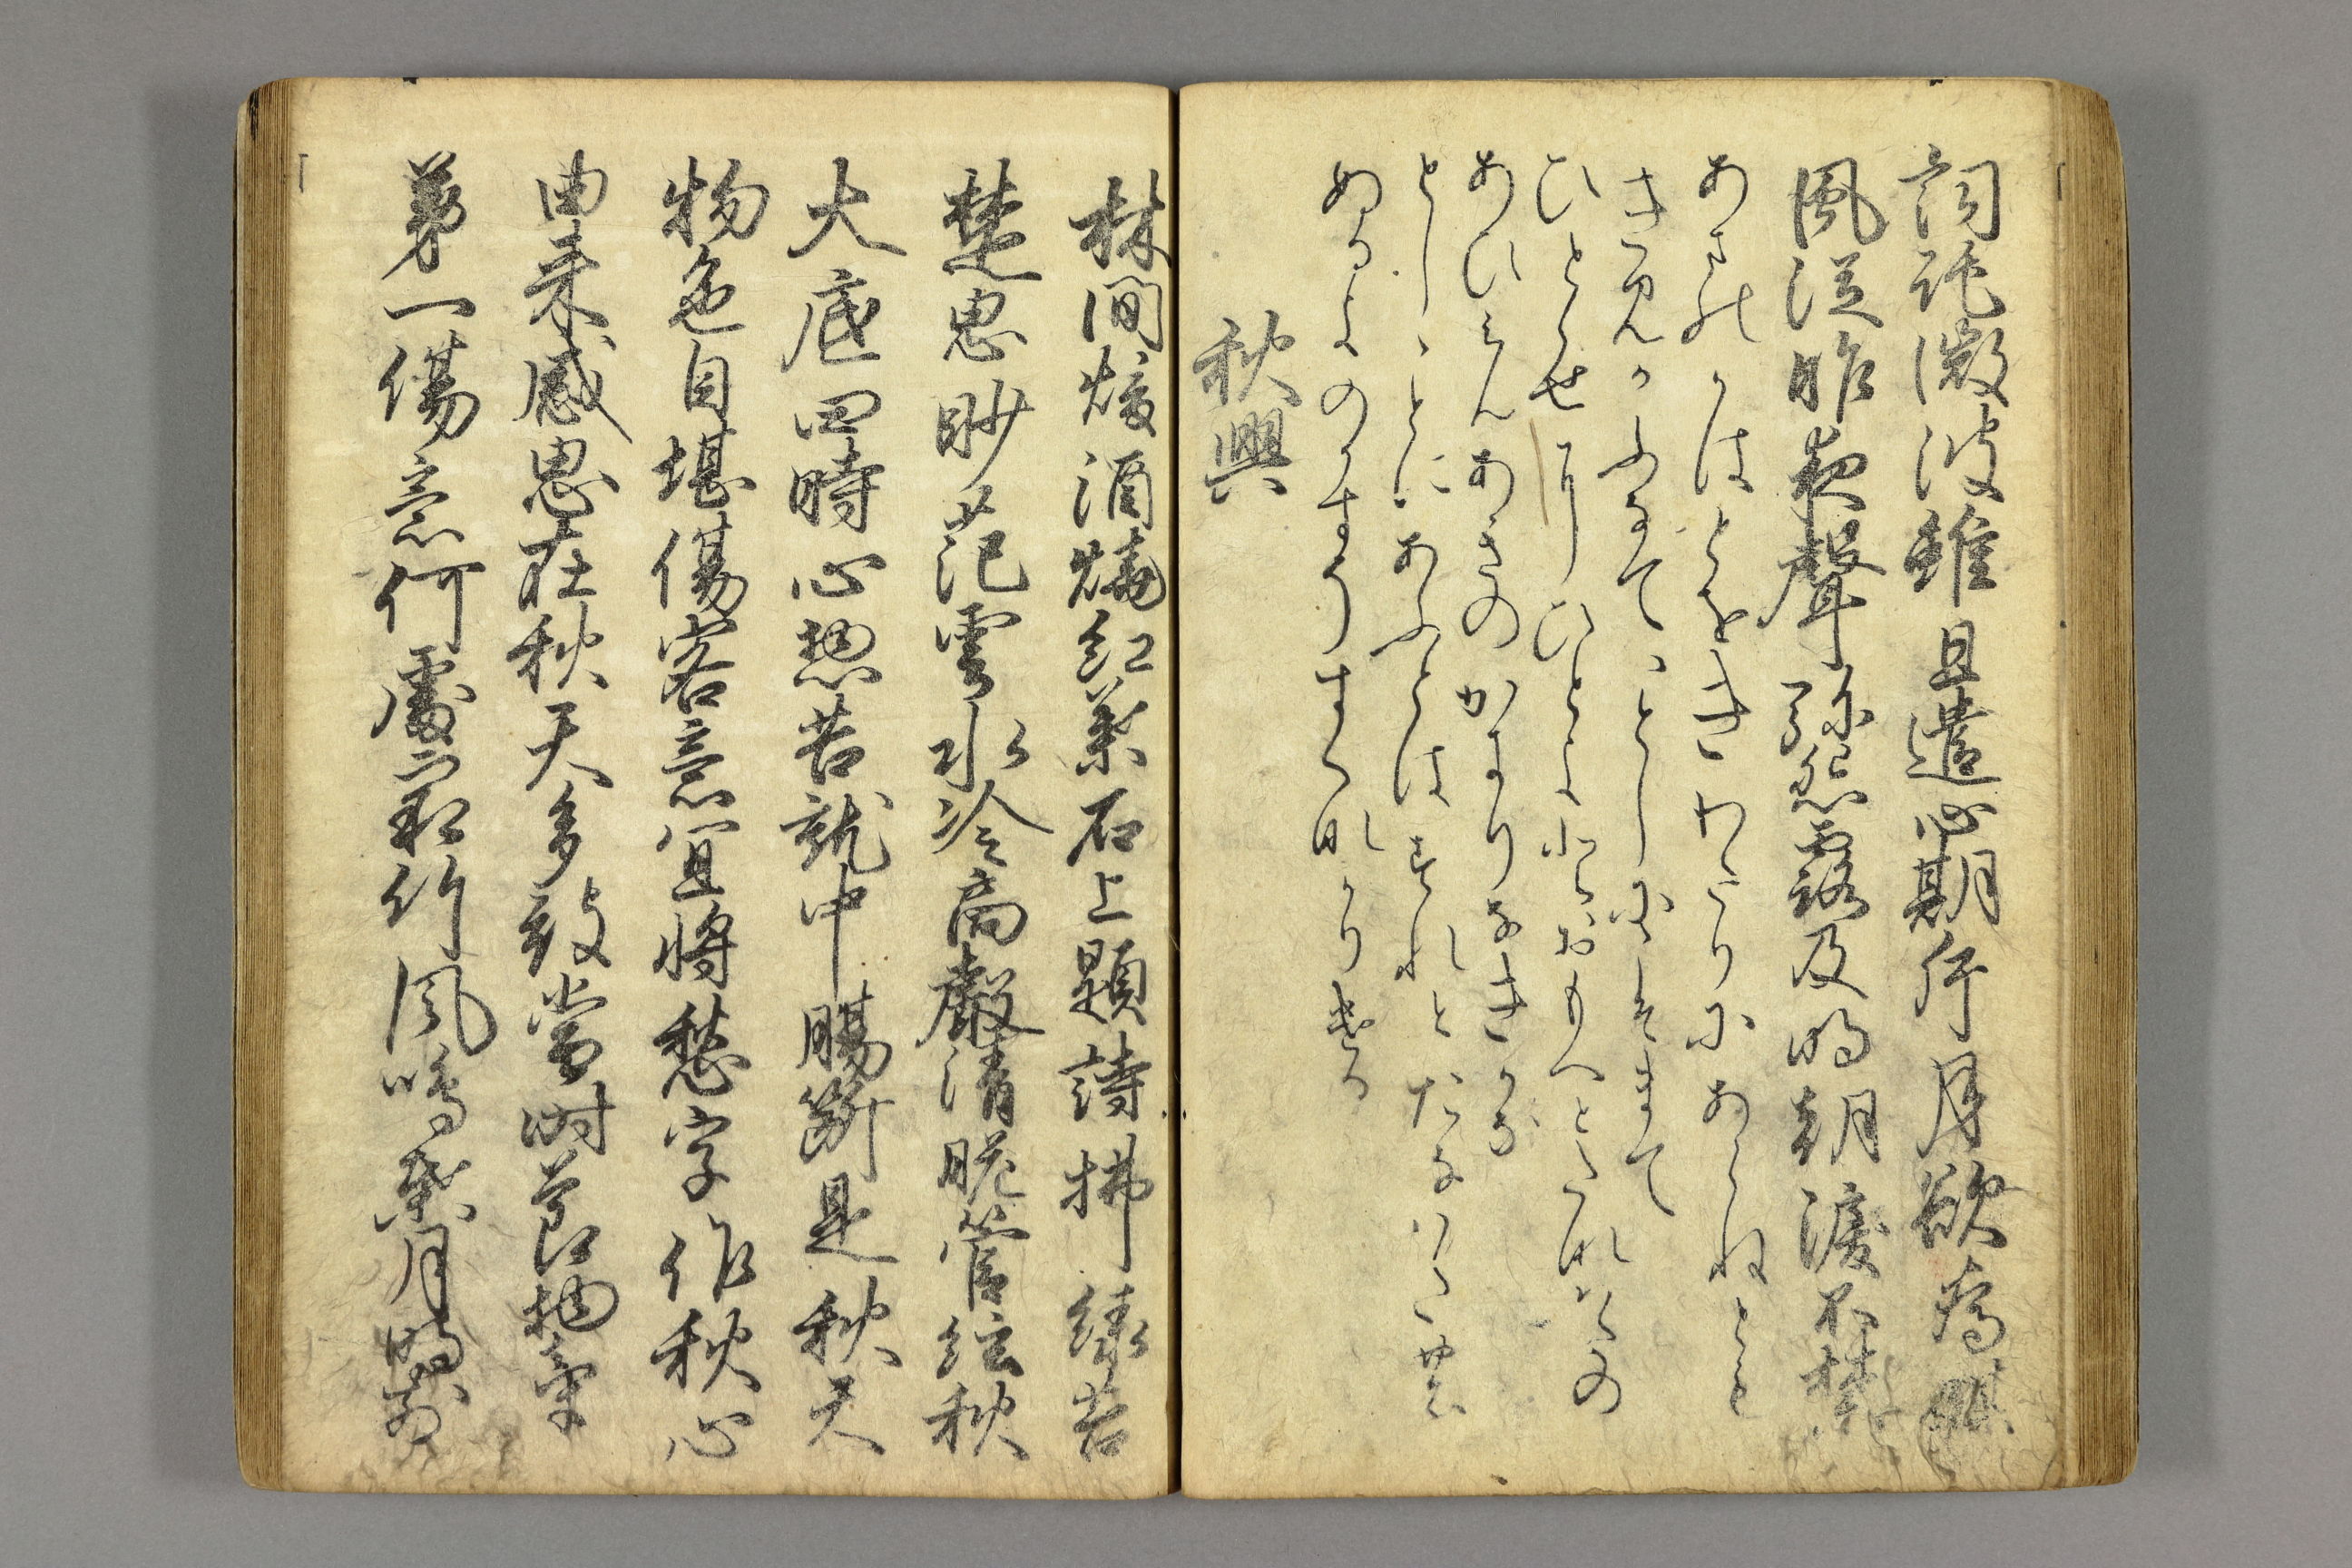 詞託微波雖且遣心期片月欲為媒
風従昨夜聲弥怨露及明朝涙不禁
あまのかはとをきわたりにあらねとも
きみかふなてはとしにこそまて
ひとゝせにひとよとおもへとたなはたの
あひみんあきのかきりなきかな
としことにあふとはすれとたなはたの
ぬるよのかすそすくなかりける
秋興
林間煖酒焼紅葉石上題詩拂緑苔
楚思眇茫雲水冷商聲清脆管絃秋
大底四時心惣苦就中腸斷是秋天
物色自堪傷客意宜將愁字作秋心
由来感思在秋天多被當時節物牽
第一傷意何處最竹風鳴葉月明前